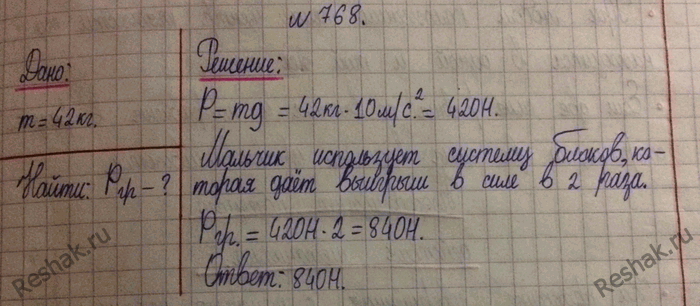 № 768.
Дано:
m = 42кг.
Найти: Pгр - ?
Решение:
P = mg = 42кг · 10м/с.² = 420Н.
Мальчик использует систему блоков, ко-
торая даёт выигрыш в силе в 2 раза.
Pгр. = 420Н · 2 = 840Н.
Ответ: 840Н.
Reshak.ru
Reshak.ru